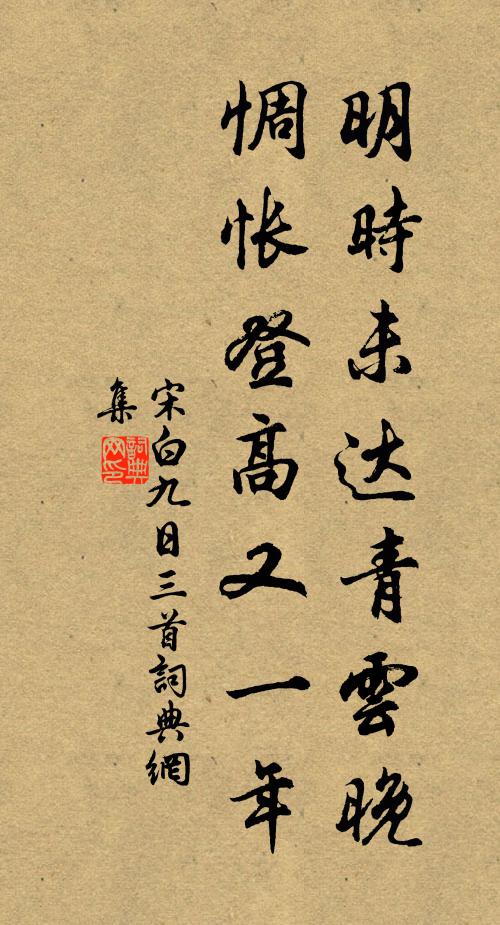 明時未达青雲晚
惆怅登高又一年
宋白九日三首詞典網
集
詞典網印